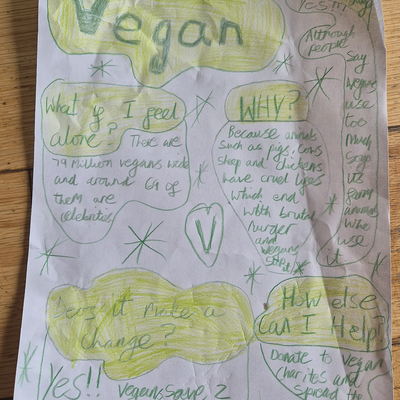 Vegan
YES!!!
Although
people
Say
vegans
use
toe
Much
Soya
its
farm
animals
who
use
it
What if I feel
alone? There are
79 Million vegans wide
and around 69 of
them are
celebrites
WHY?
Because animals
Such as pigs, cows
Sheep and chickens
have cruel lives
which end
with brutal
murger
and
vegans
Stop it!
V
Does it make a
change?
Yes!!
Vegans save, 2
How else
Can I Help?
Donate to vegan
charites and
spread the